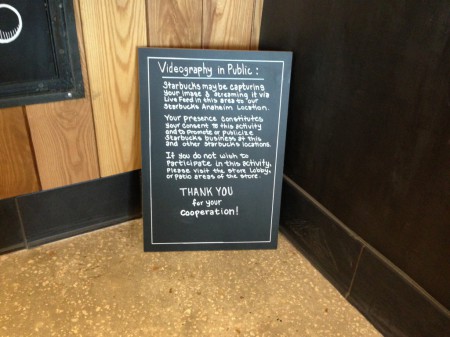 Videography in Public :
Starbucks may be capturing
your image & streaming it via
Live Feed in this area to our
Starbucks Anaheim Location.
Your presence constitutes
your consent to this activity
and to promote or publicize
Starbucks business at this
and other Starbucks locations.
If you do not wish to
participate in this activity,
Please visit the store Lobby,
or patio areas of the store.
THANK YOU
for your
Cooperation!